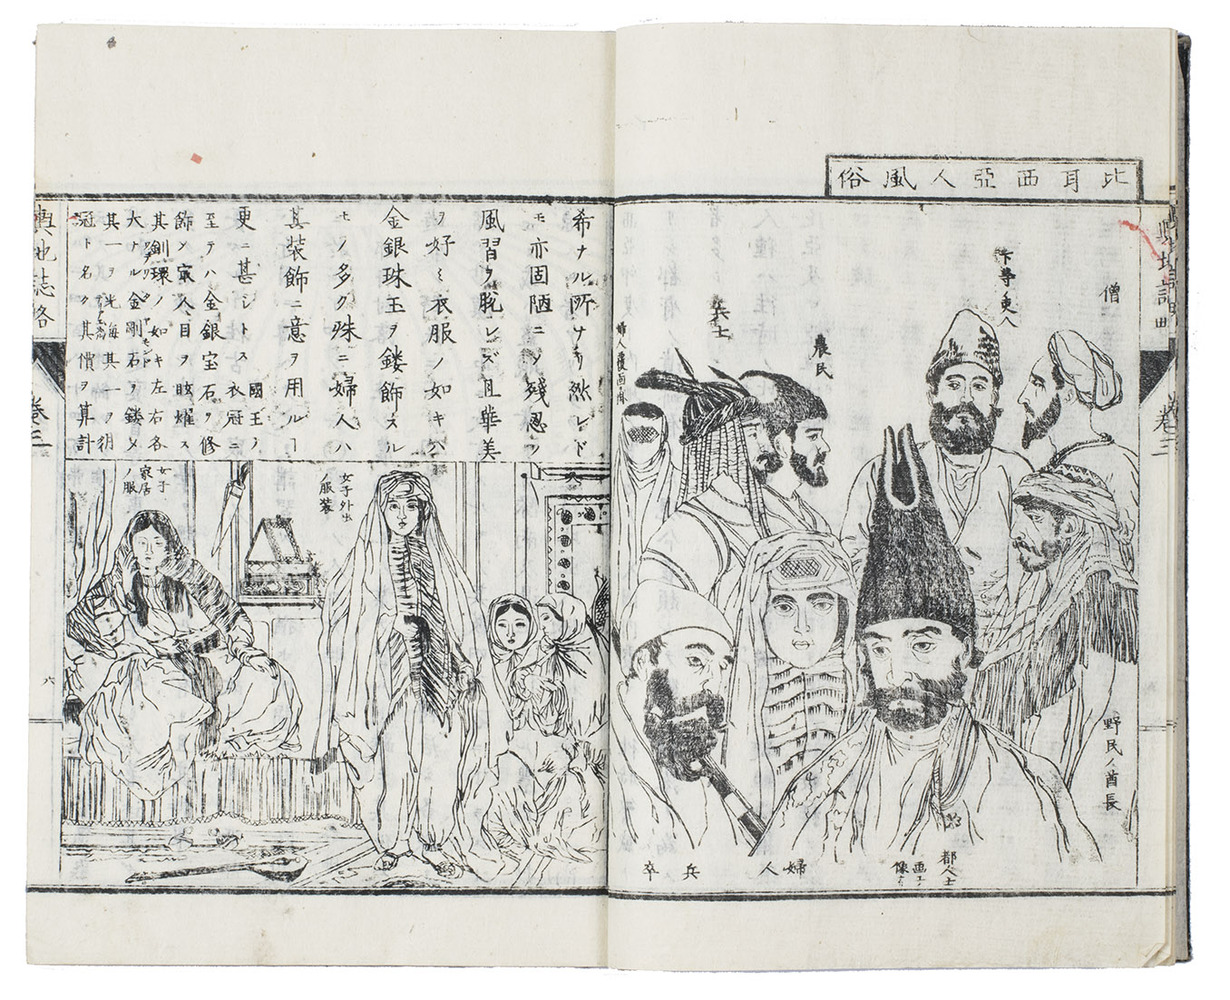 比耳西亞人風俗
輿地誌略
卷三
僧
卞尊ノ更人
農民
兵士
婦人覆面ノ
野民ノ酋長
都人士
画工ノ
像
婦人
兵卒
希ナル所ナリ然レド
モ亦固陋ニ〆殘忍ノ
風習ヲ脫レズ且華美
ヲ好ミ衣服ノ如キハ
金銀珠玉ヲ鏤飾スル
モノ多ク殊ニ婦人ハ
其装飾ニ意ヲ用ルヿ
更ニ甚シトス國王ノ衣冠ニ
至テハ金銀宝石ヲ修
飾〆寂人目ヲ眩燿ス
其釧環ノ如キ左右各
大ナル金剛石ヲ鏤メ
其一ヲ光海其一ヲ
冠ト名ク其價ヲ算計
女子外出
ノ服装
女子
家居
ノ服
輿地誌略
卷三
六